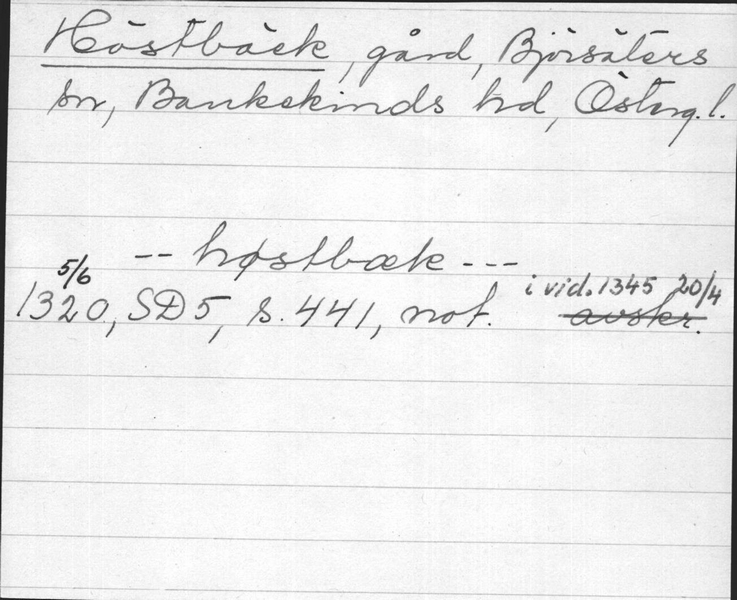 Höstbäck, gård, Björsäters
sn, Bankekinds hd, Österg.l.
-- høstbæk ---
5/6
i vid. 1345 20/4
1320, SD 5, s. 441, not. avskr.